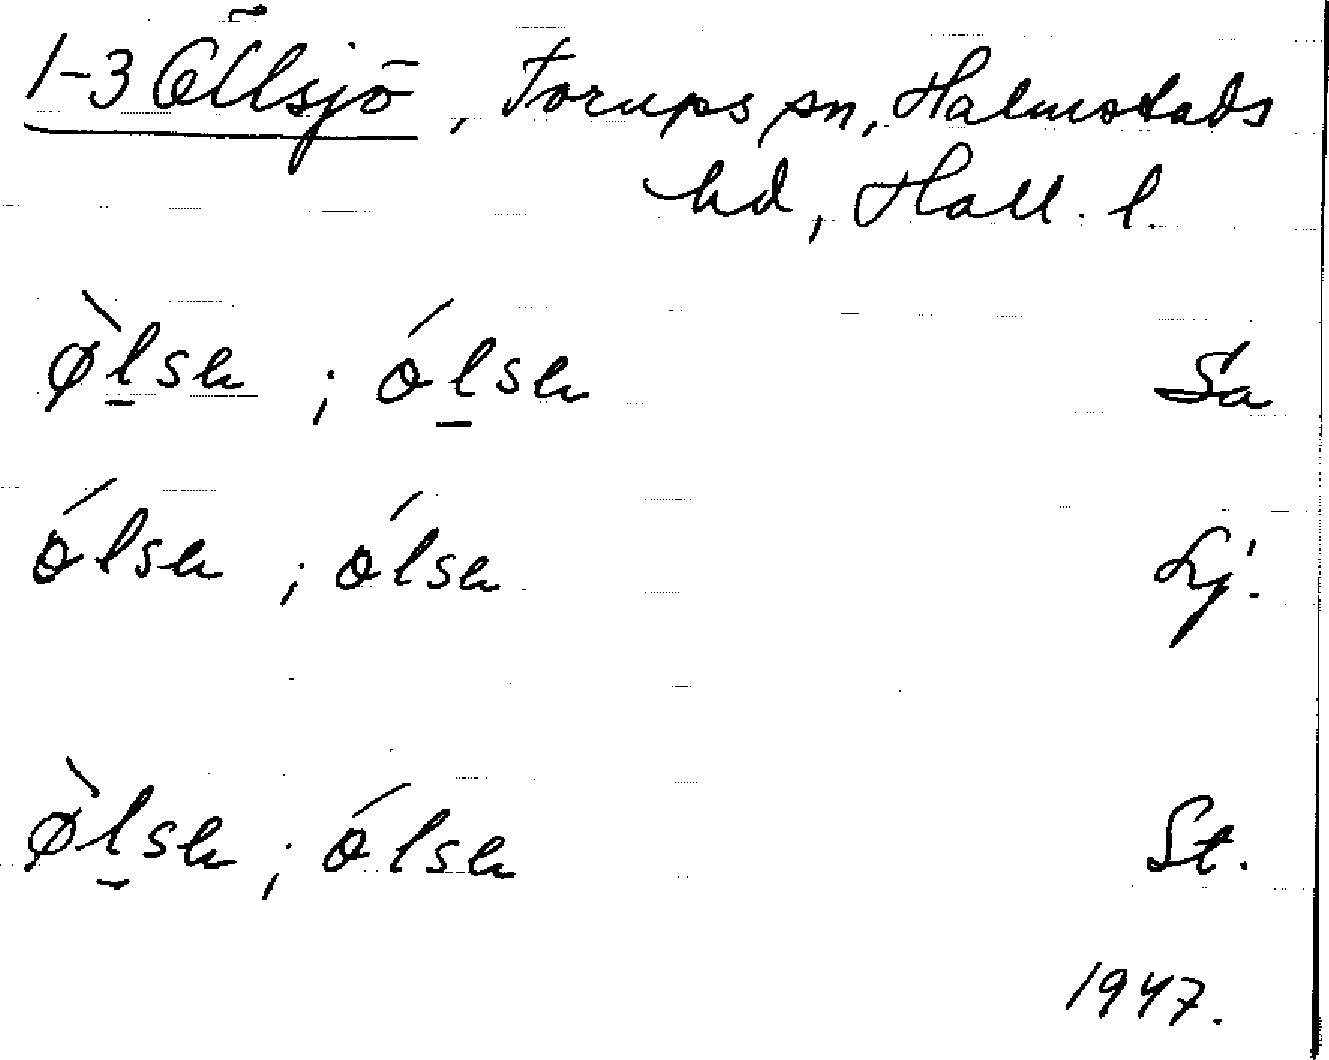 1-3 Öllsjö, Torups sn, Halmstads
hd, Hall. l.
ø̀l̲sɐ ; ól̲sɐ Sa
ólsɐ ; ólsɐ Lj.
ø̀l̲sɐ ; ólsɐ St.
1947.